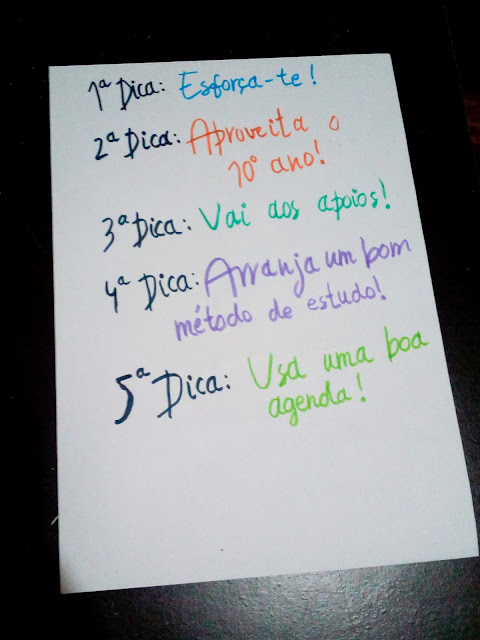 1ª Dica: Esforça-te!
2ª Dica: Aproveita o
10º ano!
3ª Dica: Vai aos apoios!
4ª Dica: Arranja um bom
método de estudo!
5ª Dica: Usa uma boa
agenda!